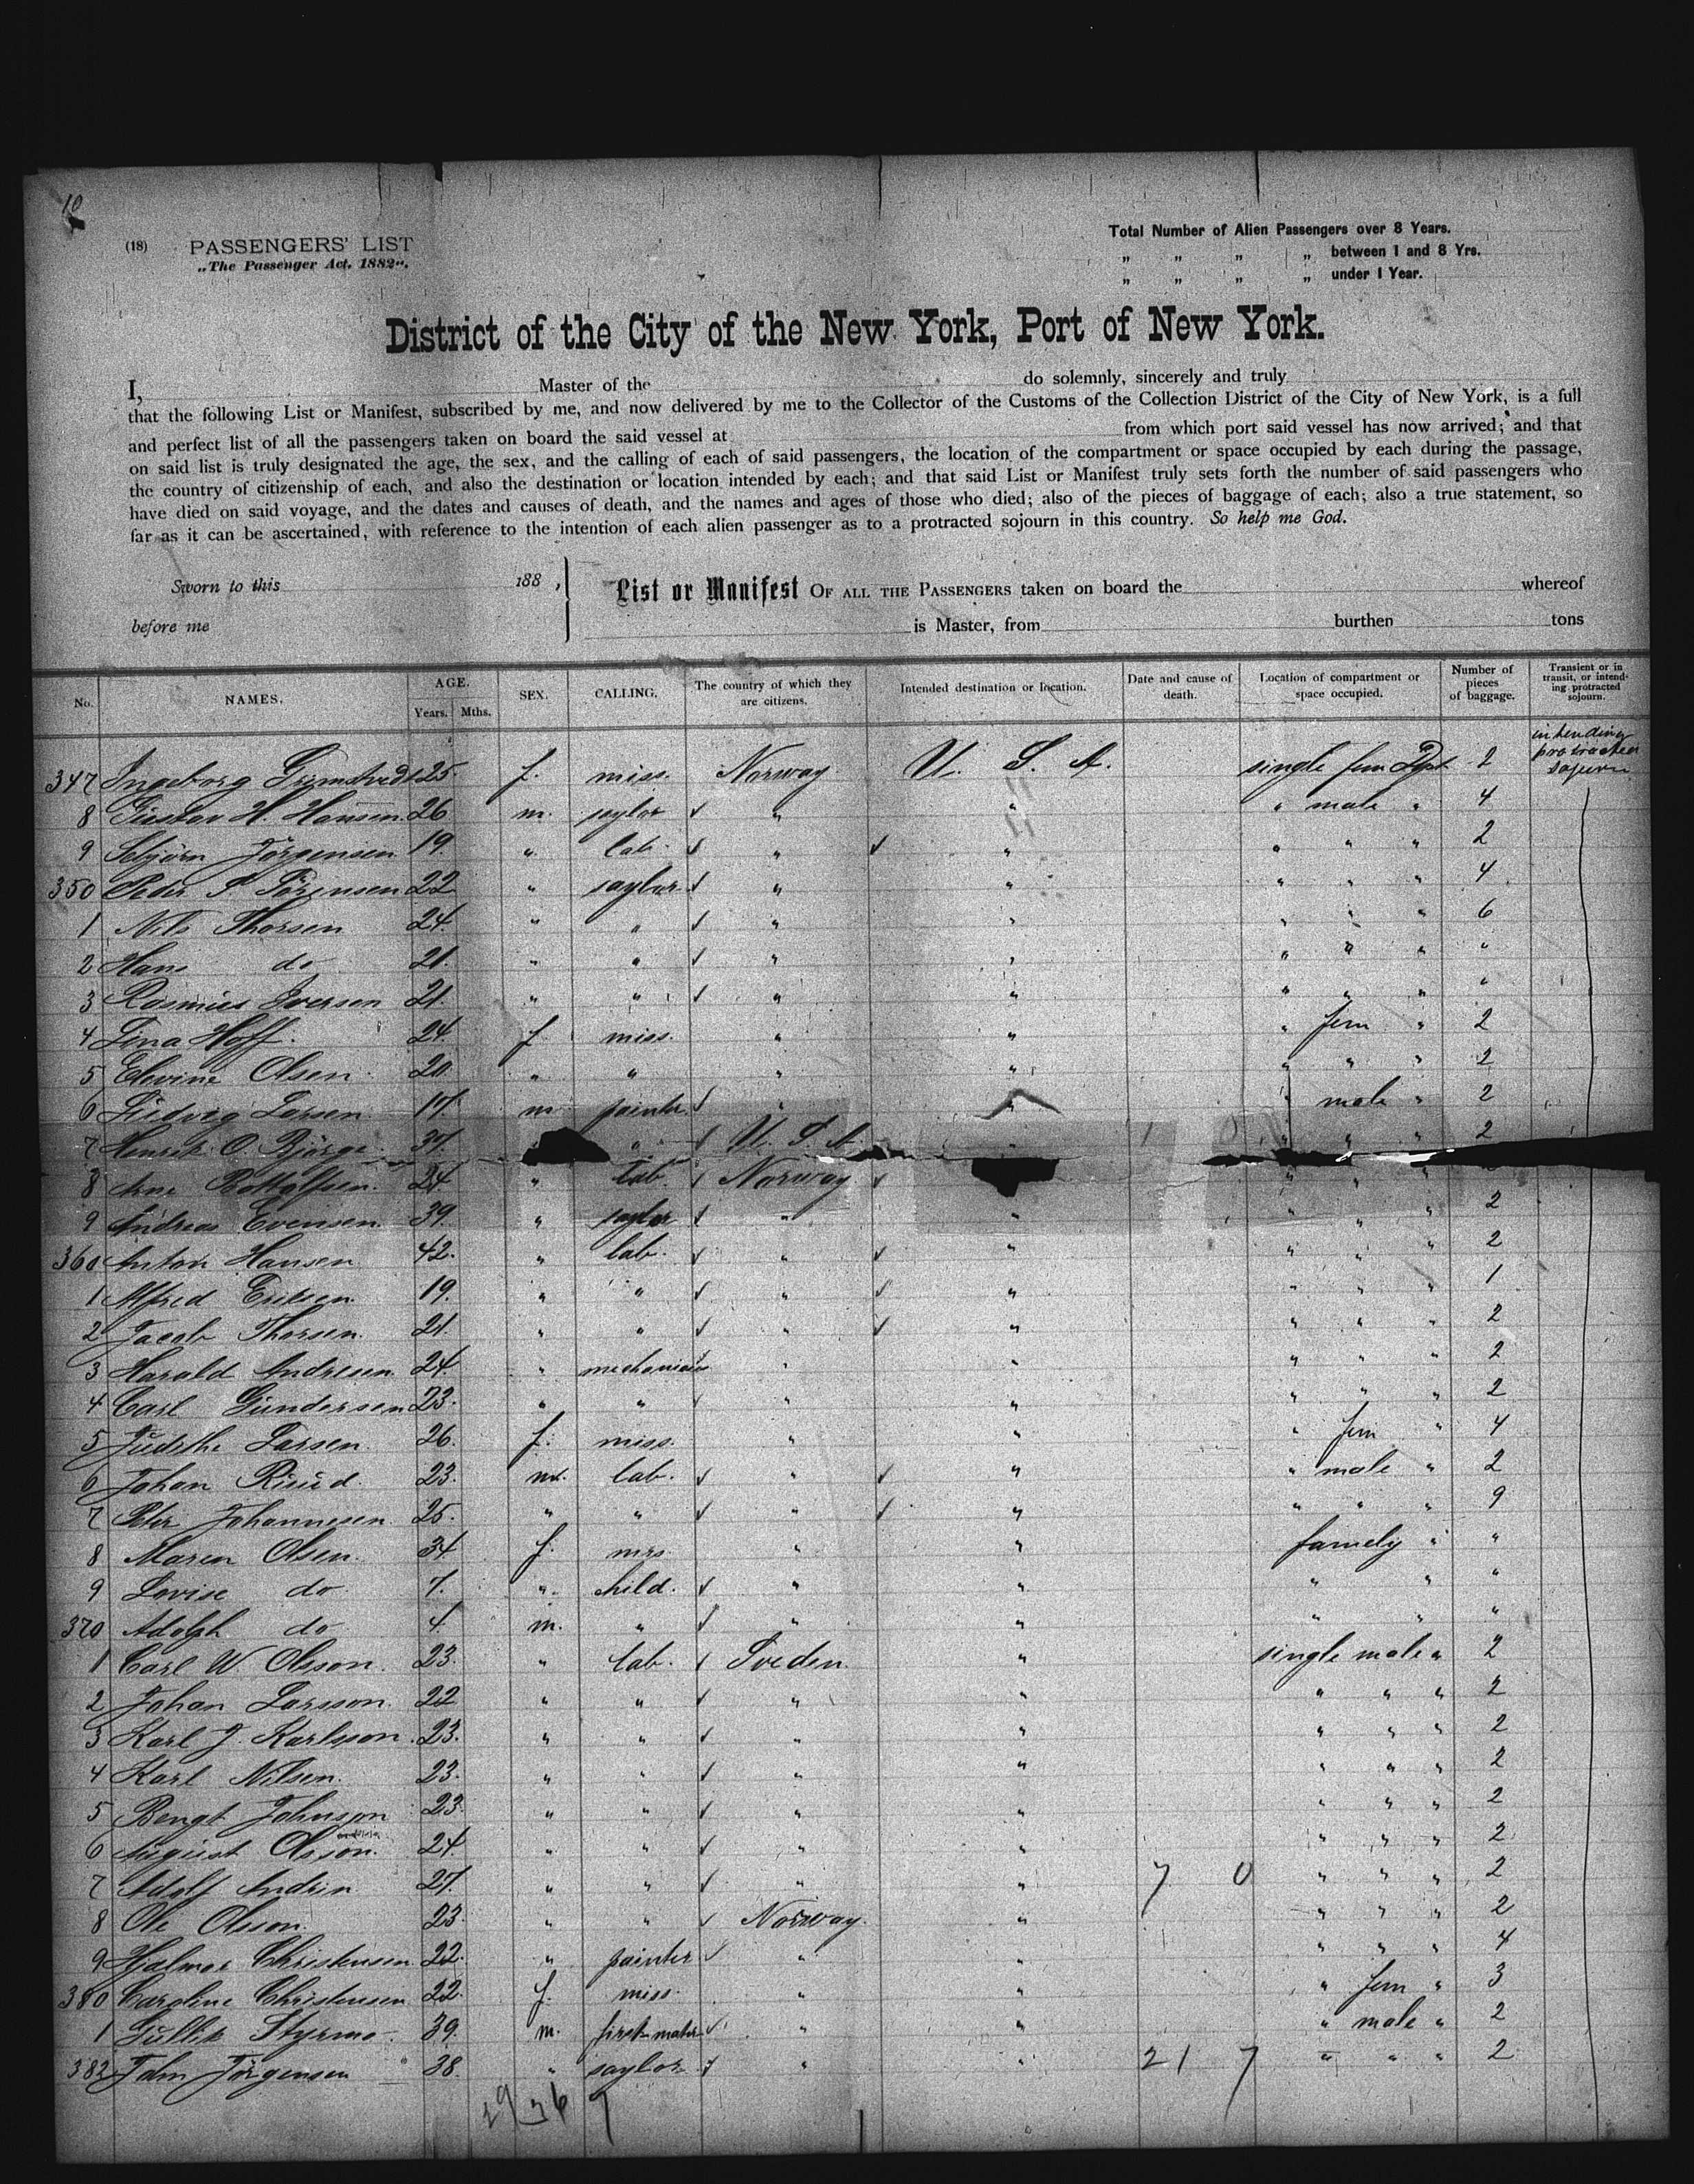 10
(18) PASSENGERS' LIST
„The Passenger Act. 1882“.
Total Number of Alien Passengers over 8 Years.
„ „ „ „ between 1 and 8 Yrs.
„ „ „ „ under 1 Year.
District of the City of the New York, Port of New York.
I, Master of the do solemnly, sincerely and truly
that the following List or Manifest, subscribed by me, and now delivered by me to the Collector of the Customs of the Collection District of the City of New York, is a full
and perfect list of all the passengers taken on board the said vessel at from which port said vessel has now arrived; and that
on said list is truly designated the age, the sex, and the calling of each of said passengers, the location of the compartment or space occupied by each during the passage,
the country of citizenship of each, and also the destination or location intended by each; and that said List or Manifest truly sets forth the number of said passengers who
have died on said voyage, and the dates and causes of death, and the names and ages of those who died; also of the pieces of baggage of each; also a true statement, so
far as it can be ascertained, with reference to the intention of each alien passenger as to a protracted sojourn in this country. So help me God.
Sworn to this 188 , List or Manifest OF ALL THE PASSENGERS taken on board the whereof
before me is Master, from burthen tons
No. NAMES. AGE. Years. Mths. SEX. CALLING. The country of which they are citizens. Intended destination or location. Date and cause of death. Location of compartment or space occupied. Number of pieces of baggage. Transient or in transit, or intending protracted sojourn.
347 Ingeborg Grimstvedt 25. f. miss. Norway U. S. A. single fem Dpt 2 intending protracted sojourn
8 Gustav H. Hansen. 26 m. saylor " " " male " 4
9 Jörgensen 19. " lab. " " " " " 2
350 Peder P. 22 " saylor " " " " " 4
1 Nils Thorsen 24. " " " " " " " 6
2 Hans do 21. " " " " " " " "
3 Rasmus Iversen 21. " " " " " " " "
4 Lina Hoff. 24. f miss. " " " fem " 2
5 Elevine Olsen 20. " " " " " " " 2
6 Ludvig Larsen 17. m painter " " " male " 2
7 Henrik O. Bjørge 37. " " U. S. A. " " " " 2
8 Arne 24 " lab. Norway " " " "
9 Andreas Evensen. 39. " saylor " " " " " 2
360 Anton Hansen 42. " lab. " " " " " 2
1 Alfred Eriksen 19. " " " " " " " 1
2 Jacob Thorsen. 21. " " " " " " " 2
3 Harald Andresen. 24. " mechanician " " " " " 2
4 Carl Gundersen 23. " " " " " " " 2
5 Larsen 26. f. miss. " " " fem " 4
6 Johan Risud. 23. m. lab. " " " male " 2
7 Peter Johannesen 25. " " " " " " " 9
8 Maren Olsen. 34 f. mrs " " famely " "
9 Lovise do 7. " child. " " " " "
370 Adolph do 4. m. " " " " " "
1 Carl W. Olsson. 23. " lab. Sveden. " single male " 2
2 Johan Larsson. 22 " " " " " " " 2
3 Karl J. Karlsson. 23. " " " " " " " 2
4 Karl Nilsen. 23. " " " " " " " 2
5 Bengt Johnson 23. " " " " " " " 2
6 August Olsson. 24. " " " " " " " 2
7 Adolf Andrin 27. " " " " 7 0 " " " 2
8 Ole Olsson. 23. " " Norway. " " " " 2
9 Hjalmar Christensen 22. " painter " " " " " 4
380 Caroline Christensen 22. f. miss. " " " fem " 3
1 Gullik Styrmo. 39. m. first-mate " " " male " 2
382 John Jörgensen 38. " saylor " " 21 7 " " " 2